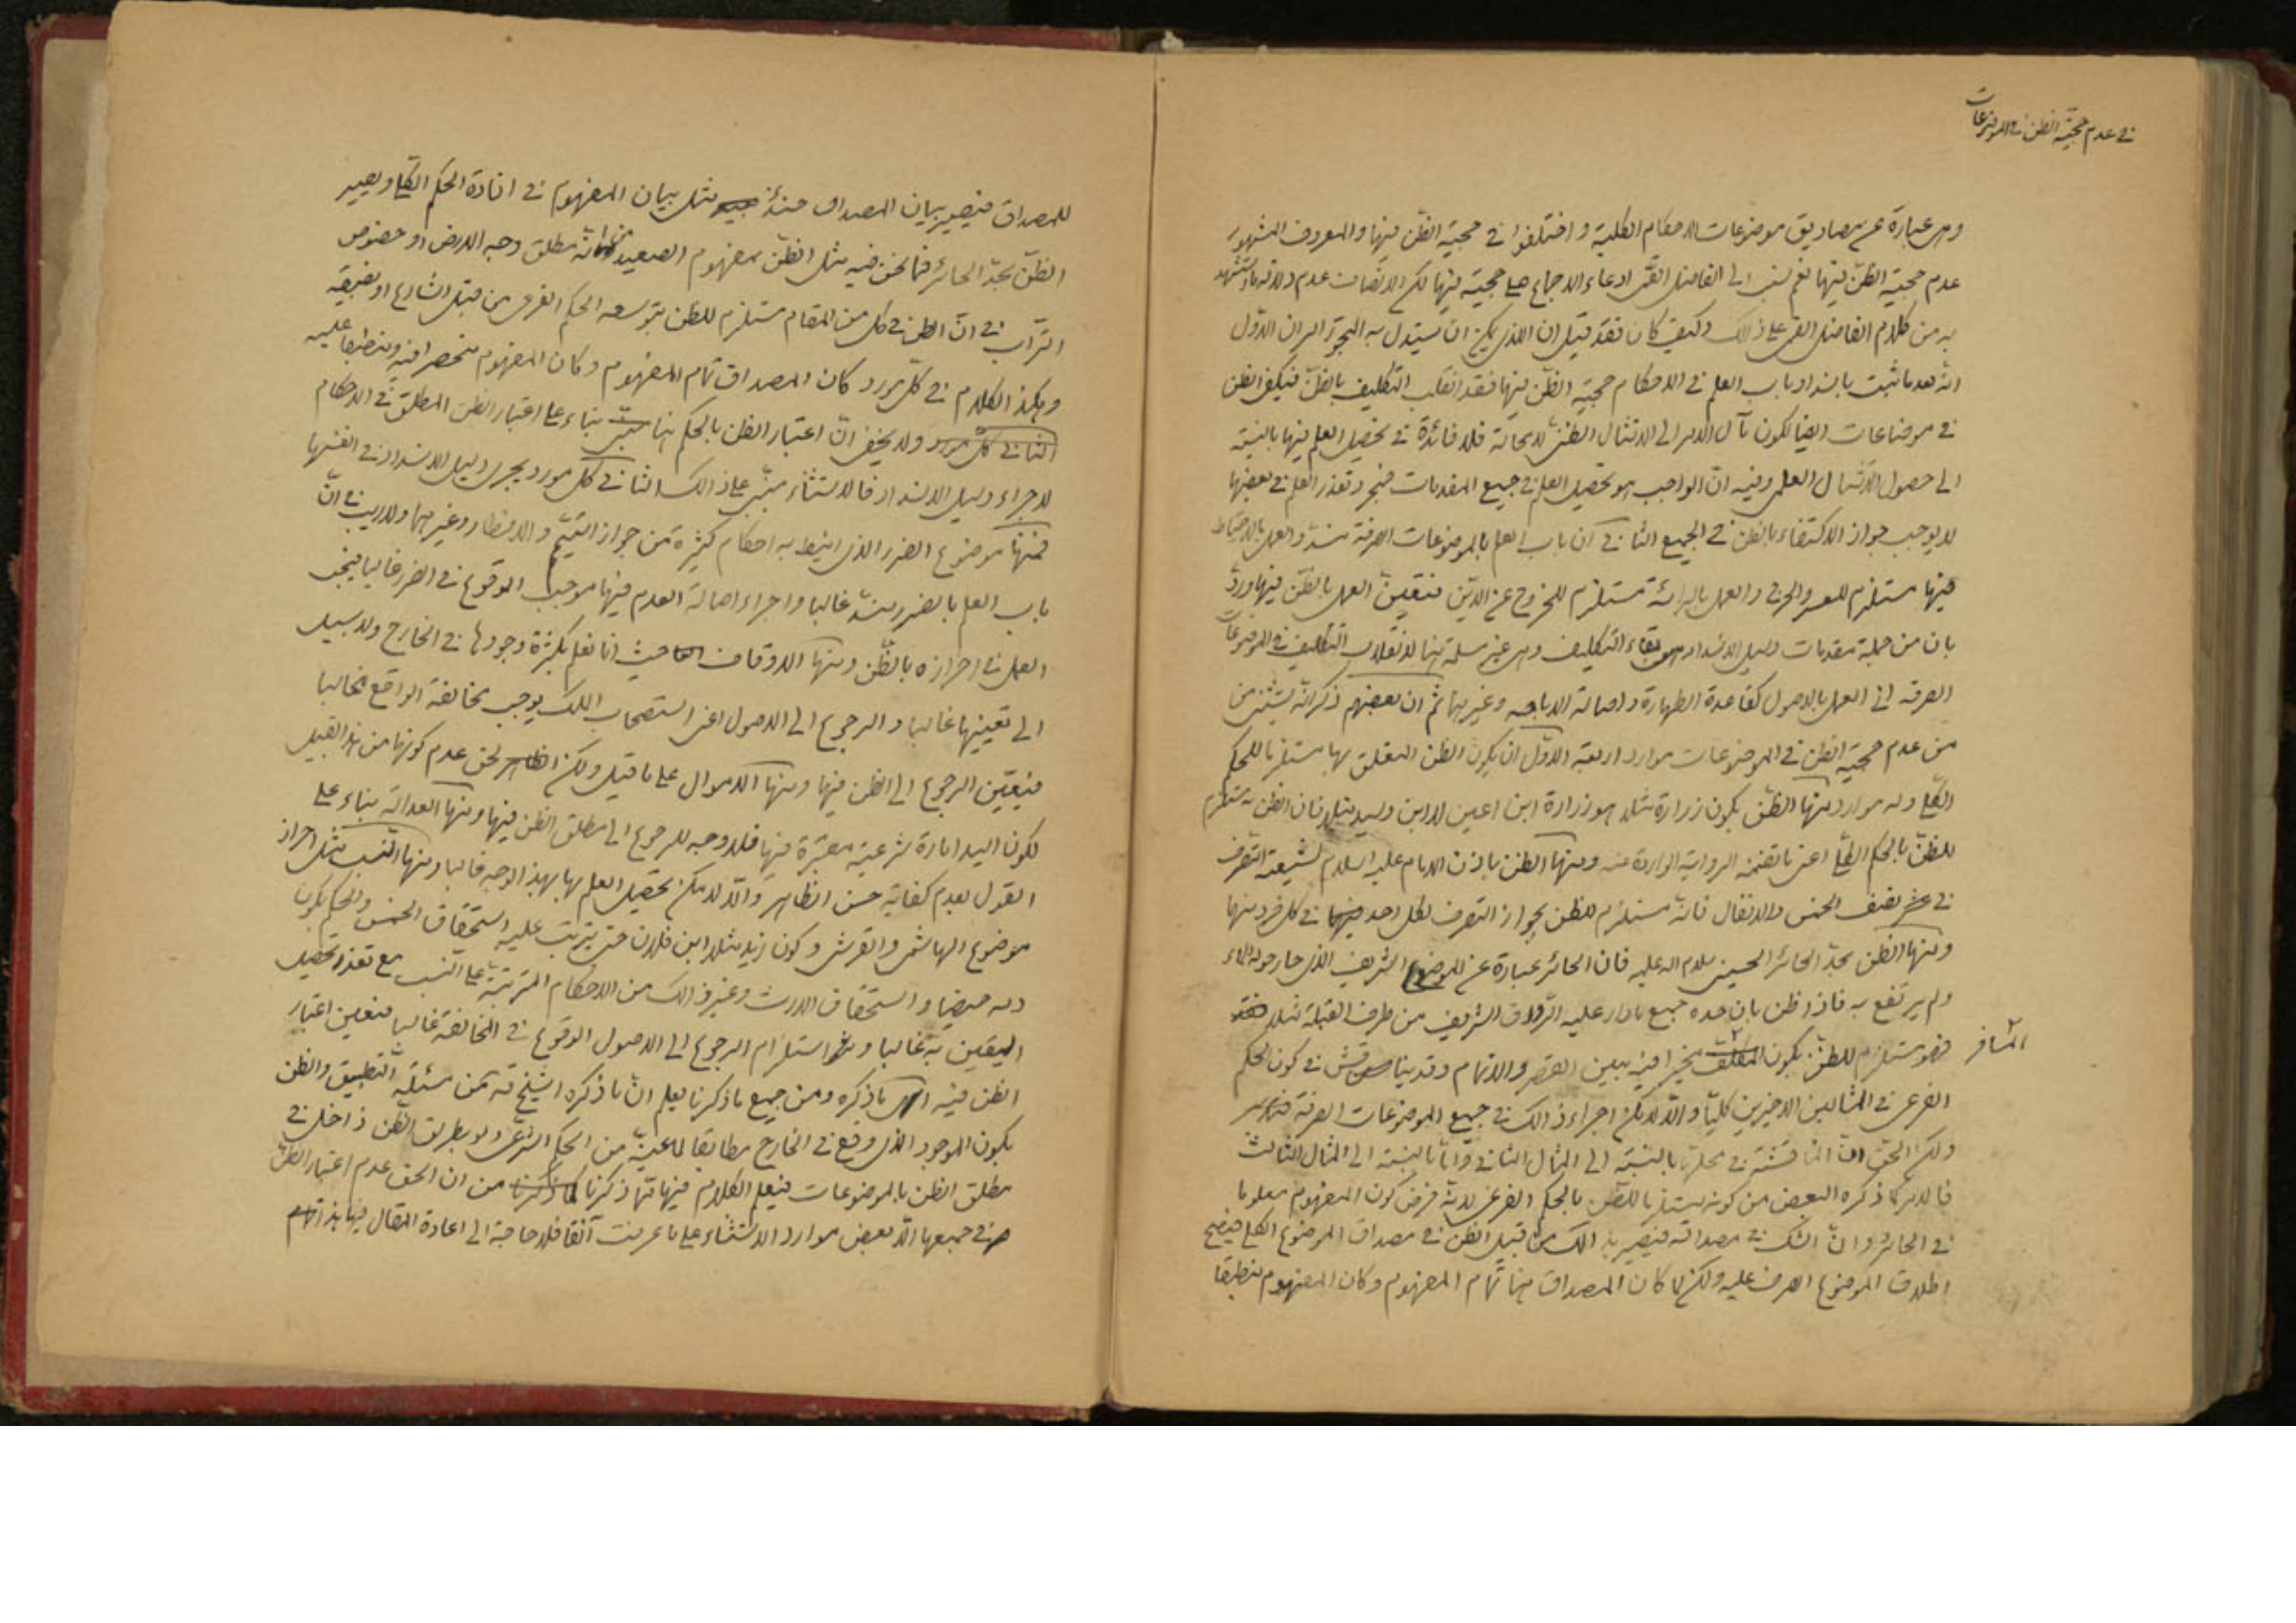 في عدم حجية الظن في الموضوعات
وهى عبارة عن مصاديق موضوعات الاحكام الكلية و اختلفوا في حجية الظن فيها والمعروف المشهور
عدم حجية الظن فيها نعم نسب الى الفاضل القمى ادعاء الاجماع على حجيته فيها لكن الانصاف عدم دلالة ما استشهد
به من كلام الفاضل القمى على ذلك وكيف كان فقد قيل ان الذى يمكن ان يستدل به للحجية امران الاول
انه بعد ما ثبت بانسداد باب العلم في الاحكام حجية الظن فيها فقد انقلب التكليف بالظن فيكفى الظن
في موضوعات ايضا لكون مآل الامر الى الامتثال الظنى لا محالة فلا فائدة في تحصيل العلم فيها بالنسبة
الى حصول الامتثال العلمى وفيه ان الواجب هو تحصيل العلم في جميع المقدمات فتعذر العلم في بعضها
لا يوجب جواز الاكتفاء بالظن في الجميع الثانى ان باب العلم بالموضوعات الصرفة منسد والعمل بالاحتياط
فيها مستلزم للعسر والحرج والعمل بالبرائة مستلزم للخروج عن الدين فتعين العمل بالظن فيها ورد
بان من جملة مقدمات دليل الانسداد هو بقاء التكليف وهى غير مسلمة هنا لانقلاب التكليف في الموضوعات
الصرفة الى العمل بالاصول كقاعدة الطهارة واصالة الاباحه وغيرهما ثم ان بعضهم ذكر انه يستثنى من
من عدم حجية الظن في الموضوعات موارد اربعة الاول ان يكون الظن المتعلق بها مستلزما للحكم
الكلى وله موارد منها الظن بكون زرارة مثلا هو زرارة ابن اعين لا ابن وليد مثلا فان الظن به مستلزم
للظن بالحكم الكلى اعنى ما تضمنه الرواية الواردة منه ومنها الظن باذن الامام عليه السلام لشيعته التصرف
في نصف الخمس والانفال فانه مستلزم للظن بجواز التصرف لكل احد في كل فرد منها
ومنها الظن بحد الحائر الحسينى سلام الله عليه فان الحائر عبارة عن الموضع الشريف الذى حار حوله الماء
ولم يرتفع به فاذا ظن بان حده جميع ما دار عليه الرواق الشريف من طرف القبلة مثلا
فهو مستلزم للظن بكون المكلف مخيرا فيه بين القصر والاتمام وقد يناقش في كون الحكم
المسافر
الفرعى في المثالين الاخيرين كليا والا لامكن اجراء ذالك في جميع الموضوعات الصرفة
ولكن الحق ان المناقشة في محلها بالنسبة الى المثال الثانى واما بالنسبة الى المثال الثالث
فالامر كما ذكره البعض من كونه مستلزما للظن بالحكم الفرعى لانه فرض كون المفهوم معلوما
في الحائر وان الشك في مصداقه فيصير بذالك من قبيل الظن في مصداق الموضوع الكلى فيصح
اطلاق الموضوع الصرف عليه ولكن لما كان المصداق هنا تمام المفهوم وكان المفهوم منطبقا
للمصداق فيصير بيان المصداق حينئذ مثل بيان المفهوم في افادة الحكم الكلى ويصير
الظن بحد الحائر فيما نحن فيه مثل الظن بمفهوم الصعيد انه مطلق وجه الارض او خصوص
التراب في ان الظن في كل من المقام مستلزم للظن بتوسعه الحكم الفرعى من قبل الشارع او تضييقه
وهكذا الكلام في كل مورد كان المصداق تمام المفهوم وكان المفهوم منحصرا فيه ومنطبقا عليه
الثانى كل مورد ولا يخفى ان اعتبار الظن بالحكم هنا بناء على اعتبار الظن المطلق في الاحكام
لاجراء دليل الانسداد فالاستثناء مبنى على ذالك الثانى كل مورد يجرى دليل الانسداد في انفسها
فمنها موضوع الضرر الذى انيط به احكام كثيرة من جواز التيمم والافطار وغيرهما ولاريب في ان
باب العلم بالضرر منسد غالبا واجراء اصالة العدم فيها موجب الوقوع في الضرر غالبا فيجب
العمل في احرازه بالظن ومنها الاوقاف حيث انا نعلم بكثرة وجودها في الخارج ولا سبيل
الى تعيينها غالبا والرجوع الى الاصول اعنى استصحاب الملك يوجب مخالفة الواقع غالبا
فيتعين الرجوع الى الظن فيها ومنها الاموال على ما قيل ولكن الظاهر لحن عدم كونها من هذا القبيل
لكون اليد امارة شرعية معتبرة فيها فلا وجه للرجوع الى مطلق الظن فيها ومنها العدالة بناء على
القول بعدم كفاية حسن الظاهر والا لا مكن تحصيل العلم بها بهذا الوجه غالبا ومنها النسب مثل احراز
موضوع الهاشمى والقرشى وكون زيد مثلا ابن فلان حتى يترتب عليه استحقاق الخمس والحكم بكون
دمه حيضا واستحقاق الارث وغير ذالك من الاحكام المترتبة على النسب مع تعذر تحصيل
اليقين به غالبا واستلزام الرجوع الى الاصول الوقوع في المخالفة غالبا فتعين اعتبار
الظن فيه ما ذكره ومن جميع ما ذكرنا يعلم ان ما ذكره الشيخ قده من مسئلة التطبيق والظن
بكون الموجود الذى وقع في الخارج مطابقا لما عينه من الحكم الشرعى ولو بطريق الظن داخل في
مطلق الظن بالموضوعات فيعلم الكلام فيها مما ذكرنا من ان الحق عدم اعتبار الظن
في جميعها الا بعض موارد الاستثناء على ما عرفت آنفا فلا حاجة الى اعادة المقال فيها بذاتها